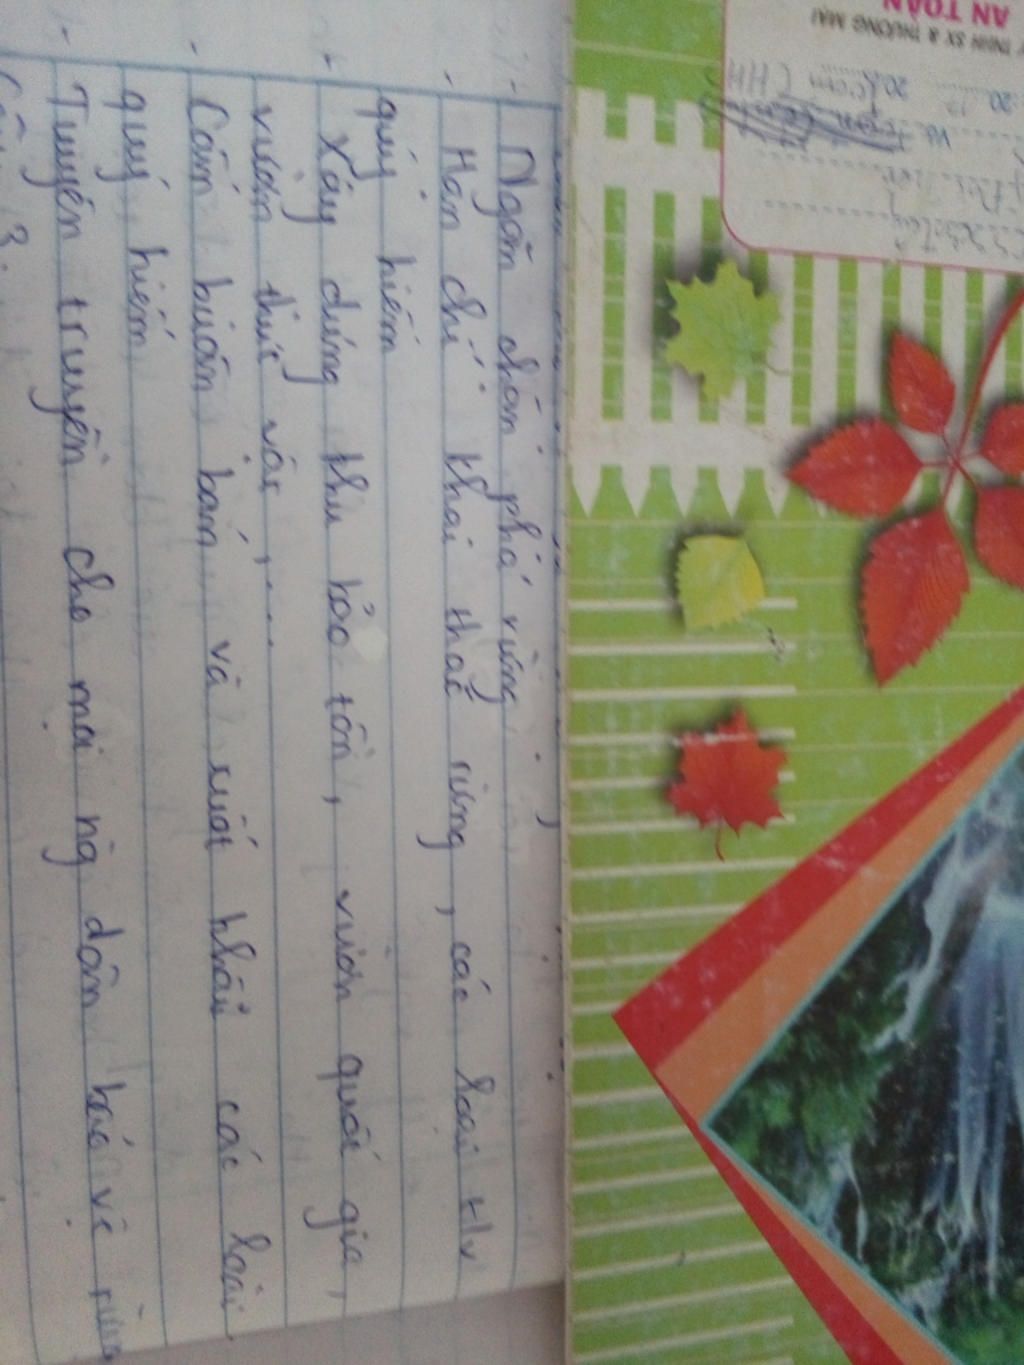 - Ngăn chặn phá rừng
- Hạn chế khai thác rừng, các loài tv
quý hiếm
- Xây dựng khu bảo tồn, vườn quốc gia,
vườn thực vật,....
- Cấm buôn bán và xuất khẩu các loài
quý hiếm
- Tuyên truyền cho mọi ng dân bảo vệ rừng
Câu 3:
AN TOÀN
TNHH SX & THƯƠNG MẠI